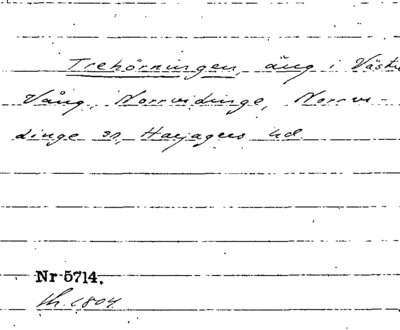 Trehörningen, äng i Västr
Vång, Norrvidinge, Norrvi-
dinge sn, Harjagers hd.
Nr 5714.
Sk. 1804